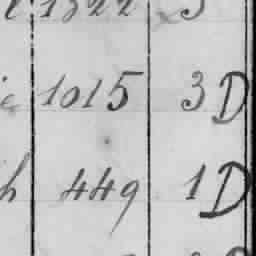 1322 3
1015 3 D
h 449 1 D